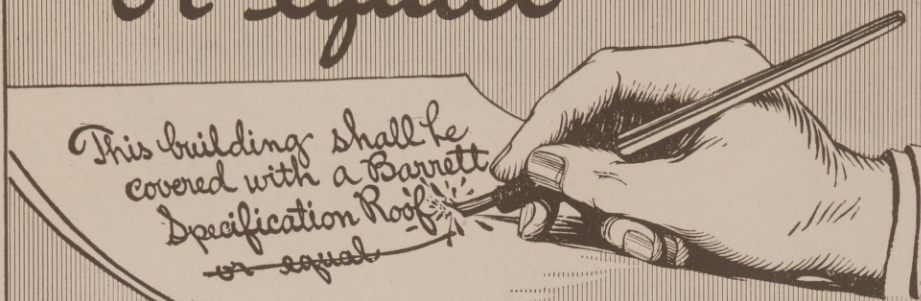 or equal
This building shall be
covered with a Barrett
Specification Roof
or equal